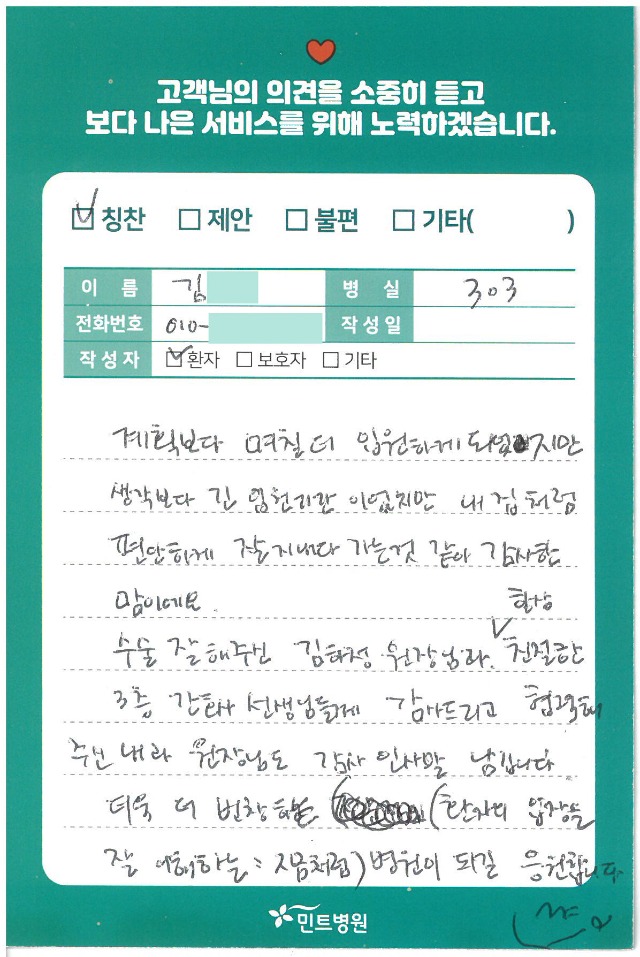 고객님의 의견을 소중히 듣고
보다 나은 서비스를 위해 노력하겠습니다.
칭찬 제안 불편 기타( )
이 름 김 병 실 303
전화번호 010- 작성일
작성자 환자 보호자 기타
계획보다 며칠 더 입원하게 되었지만
생각보다 긴 입원기간 이었지만 내 집처럼
편안하게 잘 지내다 가는것 같아 감사한
맘이에요. 항상
수술 잘해주신 김하정 원장님과 친절한
3층 간호사 선생님들께 감사드리고 협력해
주신 내과 원장님도 감사 인사말 남깁니다
더욱 더 번창하는 (환자의 입장을
잘 이해하는: 지금처럼) 병원이 되길 응원합니다
민트병원